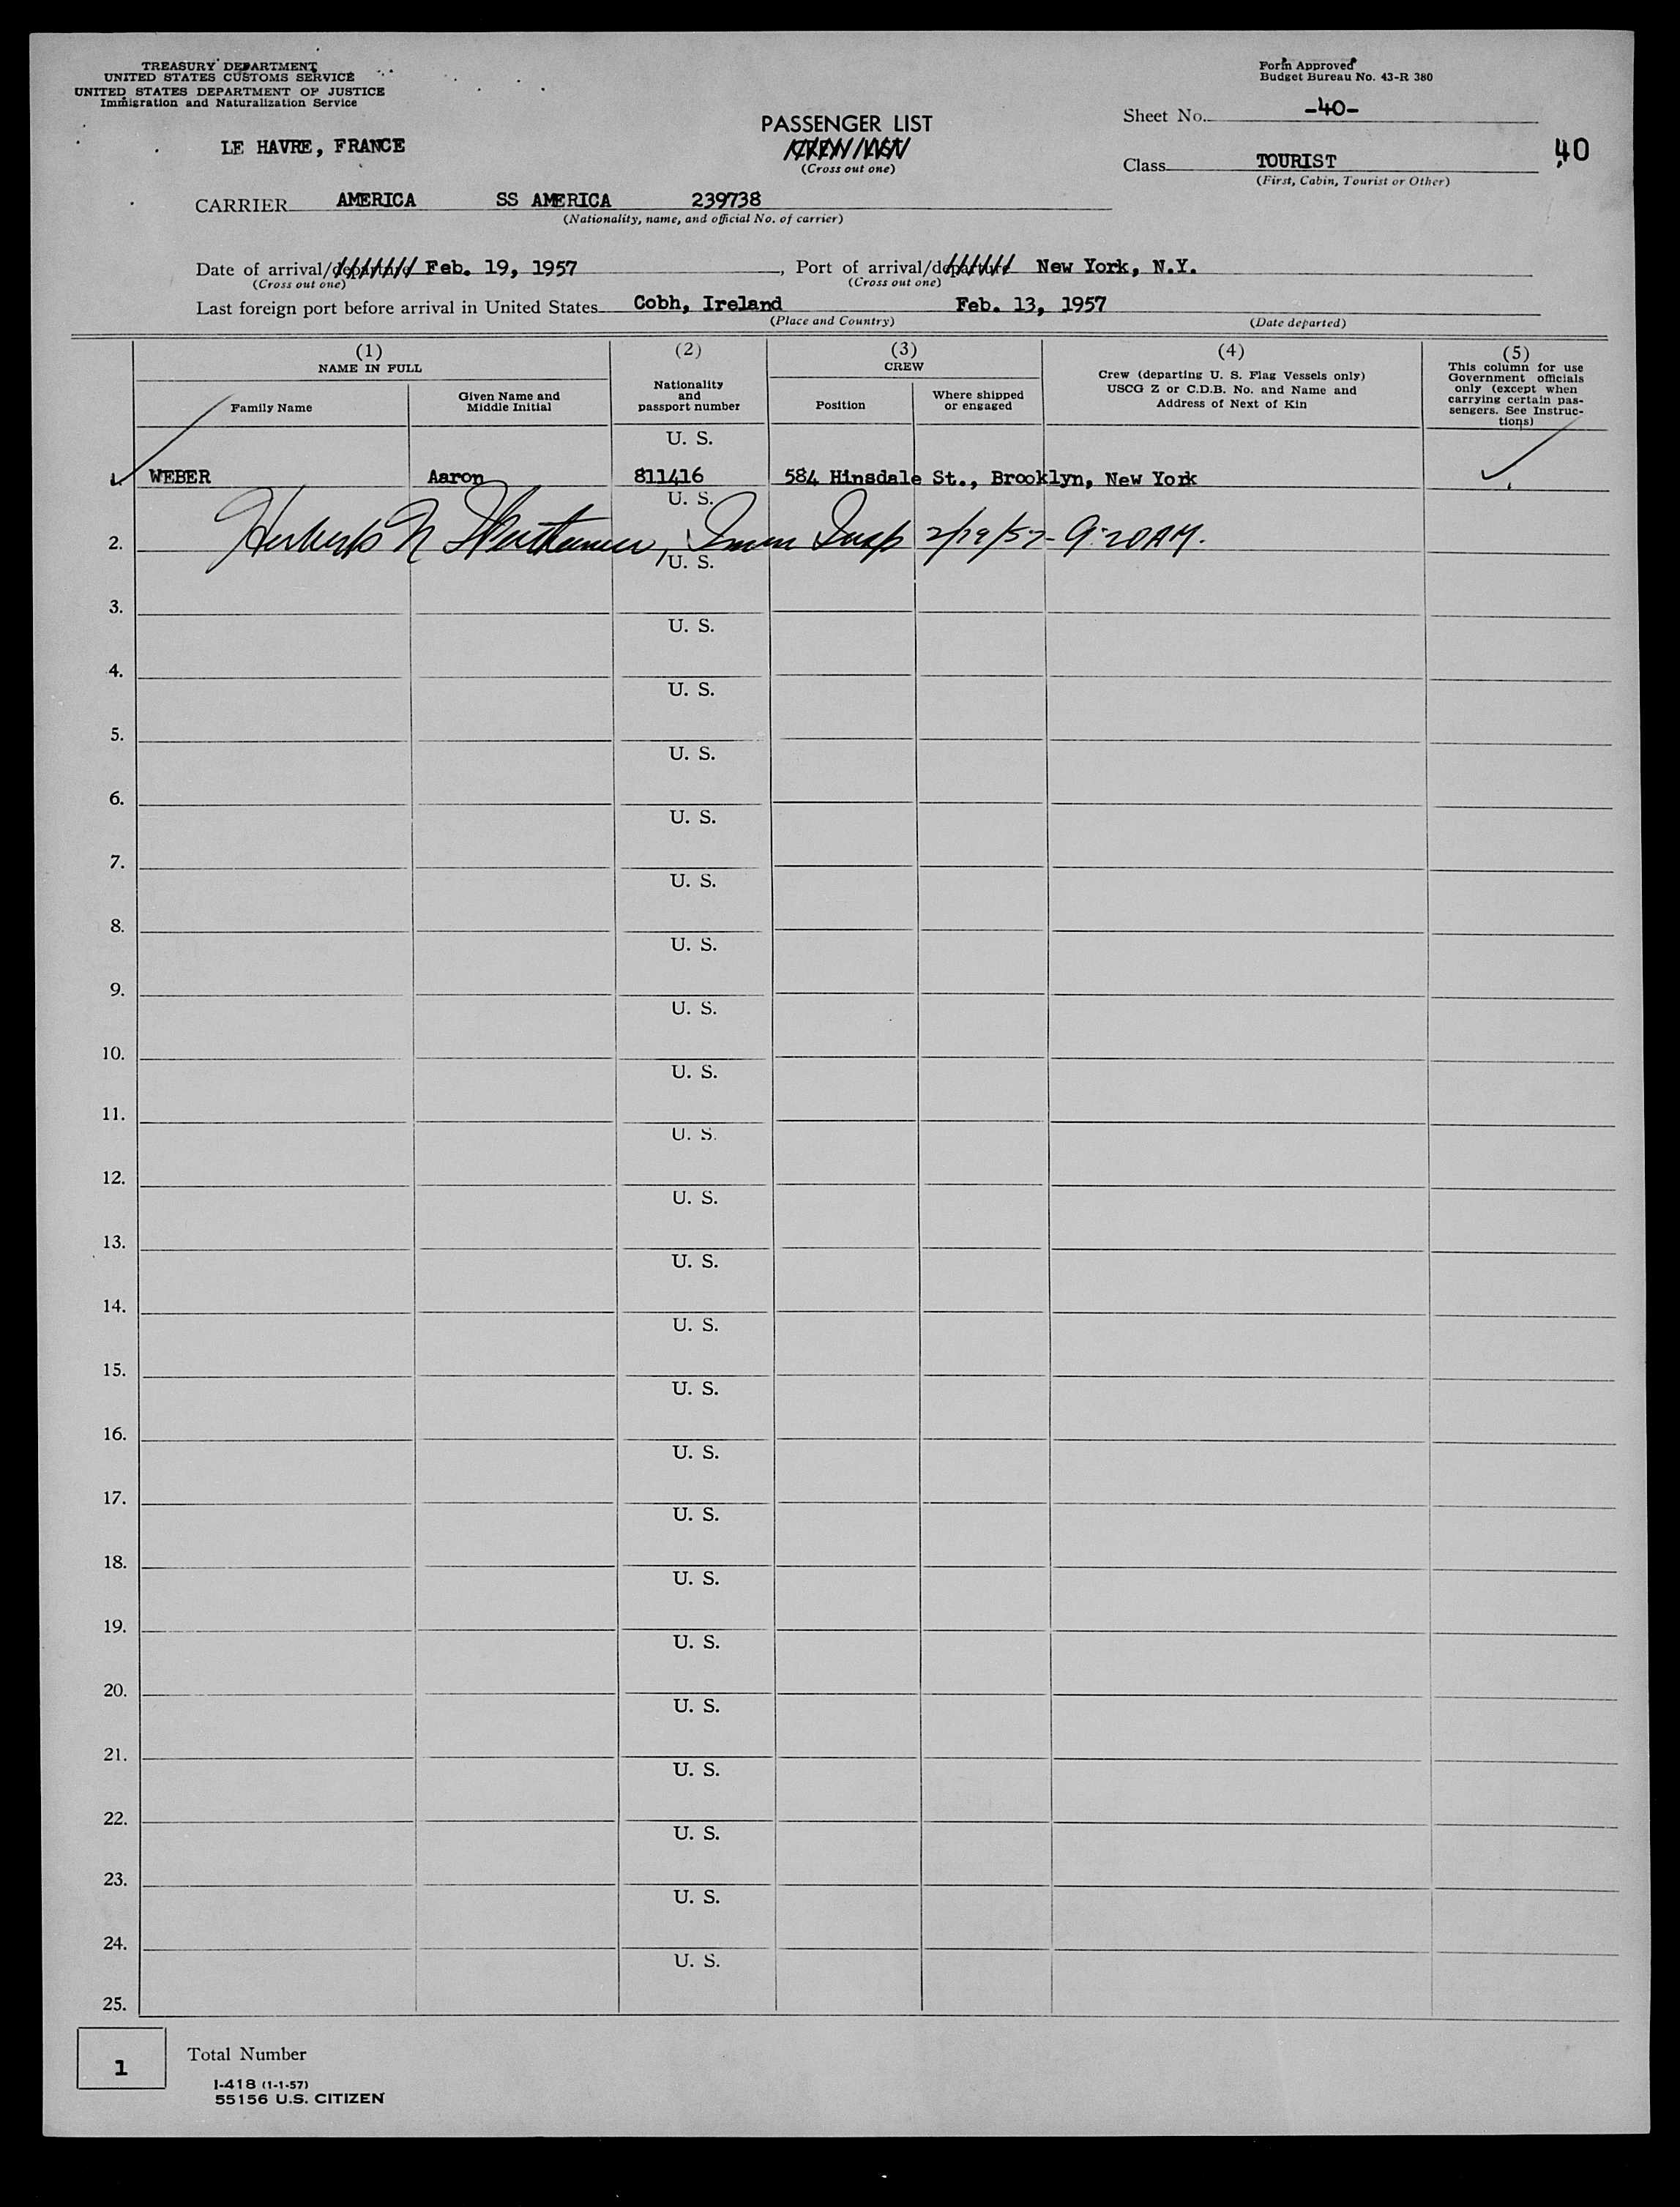 TREASURY DEPARTMENT
UNITED STATES CUSTOMS SERVICE
UNITED STATES DEPARTMENT OF JUSTICE
Immigration and Naturalization Service
Form Approved
Budget Bureau No. 43-R 380
Sheet No. -40-
LE HAVRE, FRANCE
PASSENGER LIST
CREW LIST
(Cross out one)
Class TOURIST
(First, Cabin, Tourist or Other)
40
CARRIER AMERICA SS AMERICA 239738
(Nationality, name, and official No. of carrier)
Date of arrival/departure Feb. 19, 1957, Port of arrival/departure New York, N.Y.
(Cross out one) (Cross out one)
Last foreign port before arrival in United States Cobh, Ireland Feb. 13, 1957
(Place and Country) (Date departed)
(1)
NAME IN FULL
Family Name
Given Name and
Middle Initial
(2)
Nationality
and
passport number
(3)
CREW
Position
Where shipped
or engaged
(4)
Crew (departing U. S. Flag Vessels only)
USCG Z or C.D.B. No. and Name and
Address of Next of Kin
(5)
This column for use
Government officials
only (except when
carrying certain pas-
sengers. See Instruc-
tions)
U. S.
1. WEBER Aaron 811416 584 Hinsdale St., Brooklyn, New York
U. S.
Herbert N , Imm Insp 2/19/57 - 9:20 AM.
2.
U. S.
3.
U. S.
4.
U. S.
5.
U. S.
6.
U. S.
7.
U. S.
8.
U. S.
9.
U. S.
10.
U. S.
11.
U. S.
12.
U. S.
13.
U. S.
14.
U. S.
15.
U. S.
16.
U. S.
17.
U. S.
18.
U. S.
19.
U. S.
20.
U. S.
21.
U. S.
22.
U. S.
23.
U. S.
24.
U. S.
25.
1 Total Number
I-418 (1-1-57)
55156 U.S. CITIZEN